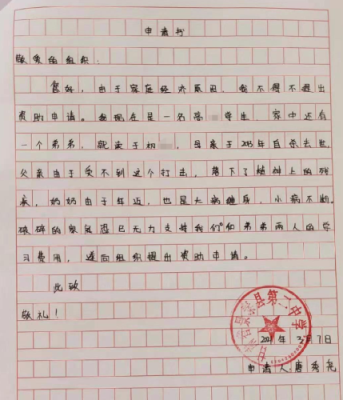 申请书
敬爱的组织:
您好,由于家庭经济原因,我不得不提出
资助申请。我现在是一名高 学生,家中还有
一个弟弟,就读于初 ,母亲于 年自杀去世,
父亲由于受不到这个打击,落下了精神上的残
疾,奶奶由于年迈,也是大病缠身,小病不断,
破碎的家庭已无力支持我们和弟弟两人的学
习费用,遂向组织提出资助申请。
此致
敬礼!
县第二中学
年3月7日
申请人:唐秀